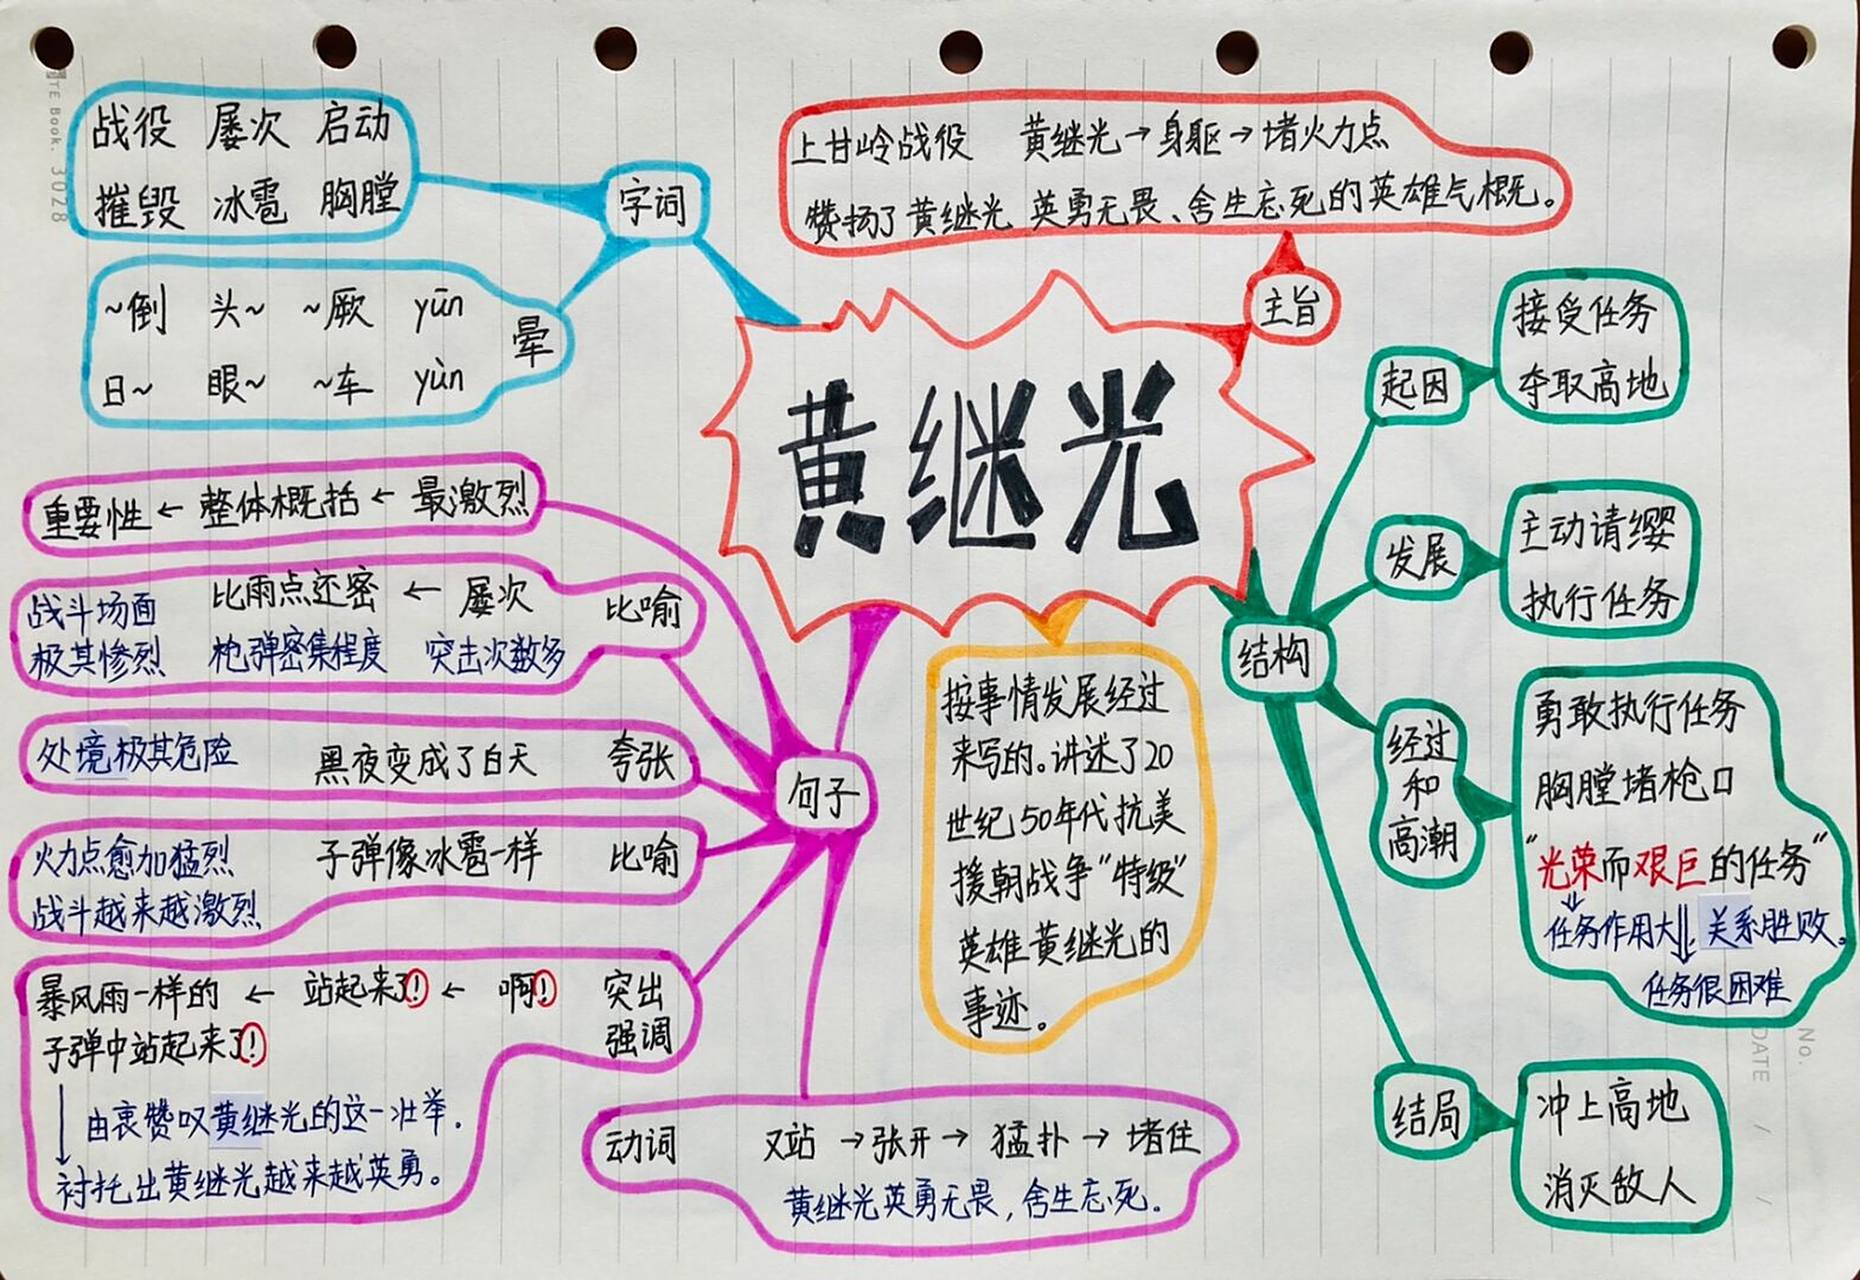 TE Book. 3028
战役 屡次 启动
摧毁 冰雹 胸膛
字词
~倒 头~ ~厥 yūn
日~ 眼~ ~车 yùn
晕
上甘岭战役 黄继光→身躯→堵火力点
赞扬了黄继光 英勇无畏、舍生忘死的英雄气概。
主旨
黄继光
重要性 ← 整体概括 ← 最激烈
战斗场面 比雨点还密 ← 屡次 比喻
极其惨烈 枪弹密集程度 突击次数多
处境极其危险 黑夜变成了白天 夸张
句子
火力点愈加猛烈 子弹像冰雹一样 比喻
战斗越来越激烈
暴风雨一样的 ← 站起来了! ← 啊! 突出
子弹中站起来了! 强调
由衷赞叹黄继光的这一壮举.
衬托出黄继光越来越英勇。
动词 又站 →张开→ 猛扑 → 堵住
黄继光英勇无畏,舍生忘死。
按事情发展经过
来写的。讲述了20
世纪50年代抗美
援朝战争"特级"
英雄黄继光的
事迹。
结构
起因
接受任务
夺取高地
发展
主动请缨
执行任务
经过
和
高潮
勇敢执行任务
胸膛堵枪口
"光荣而艰巨的任务"
任务作用大 关系胜败。
任务很困难
结局
冲上高地
消灭敌人
No.
DATE / /